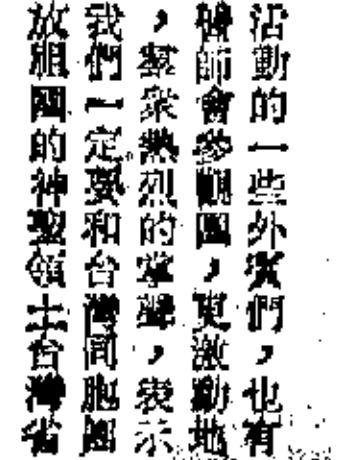 活動的一些外賓們，也有
醫師會參觀團，更激動地
，羣衆熱烈的掌聲，表示
我們一定要和台灣同胞團
放祖國的神聖領土台灣省